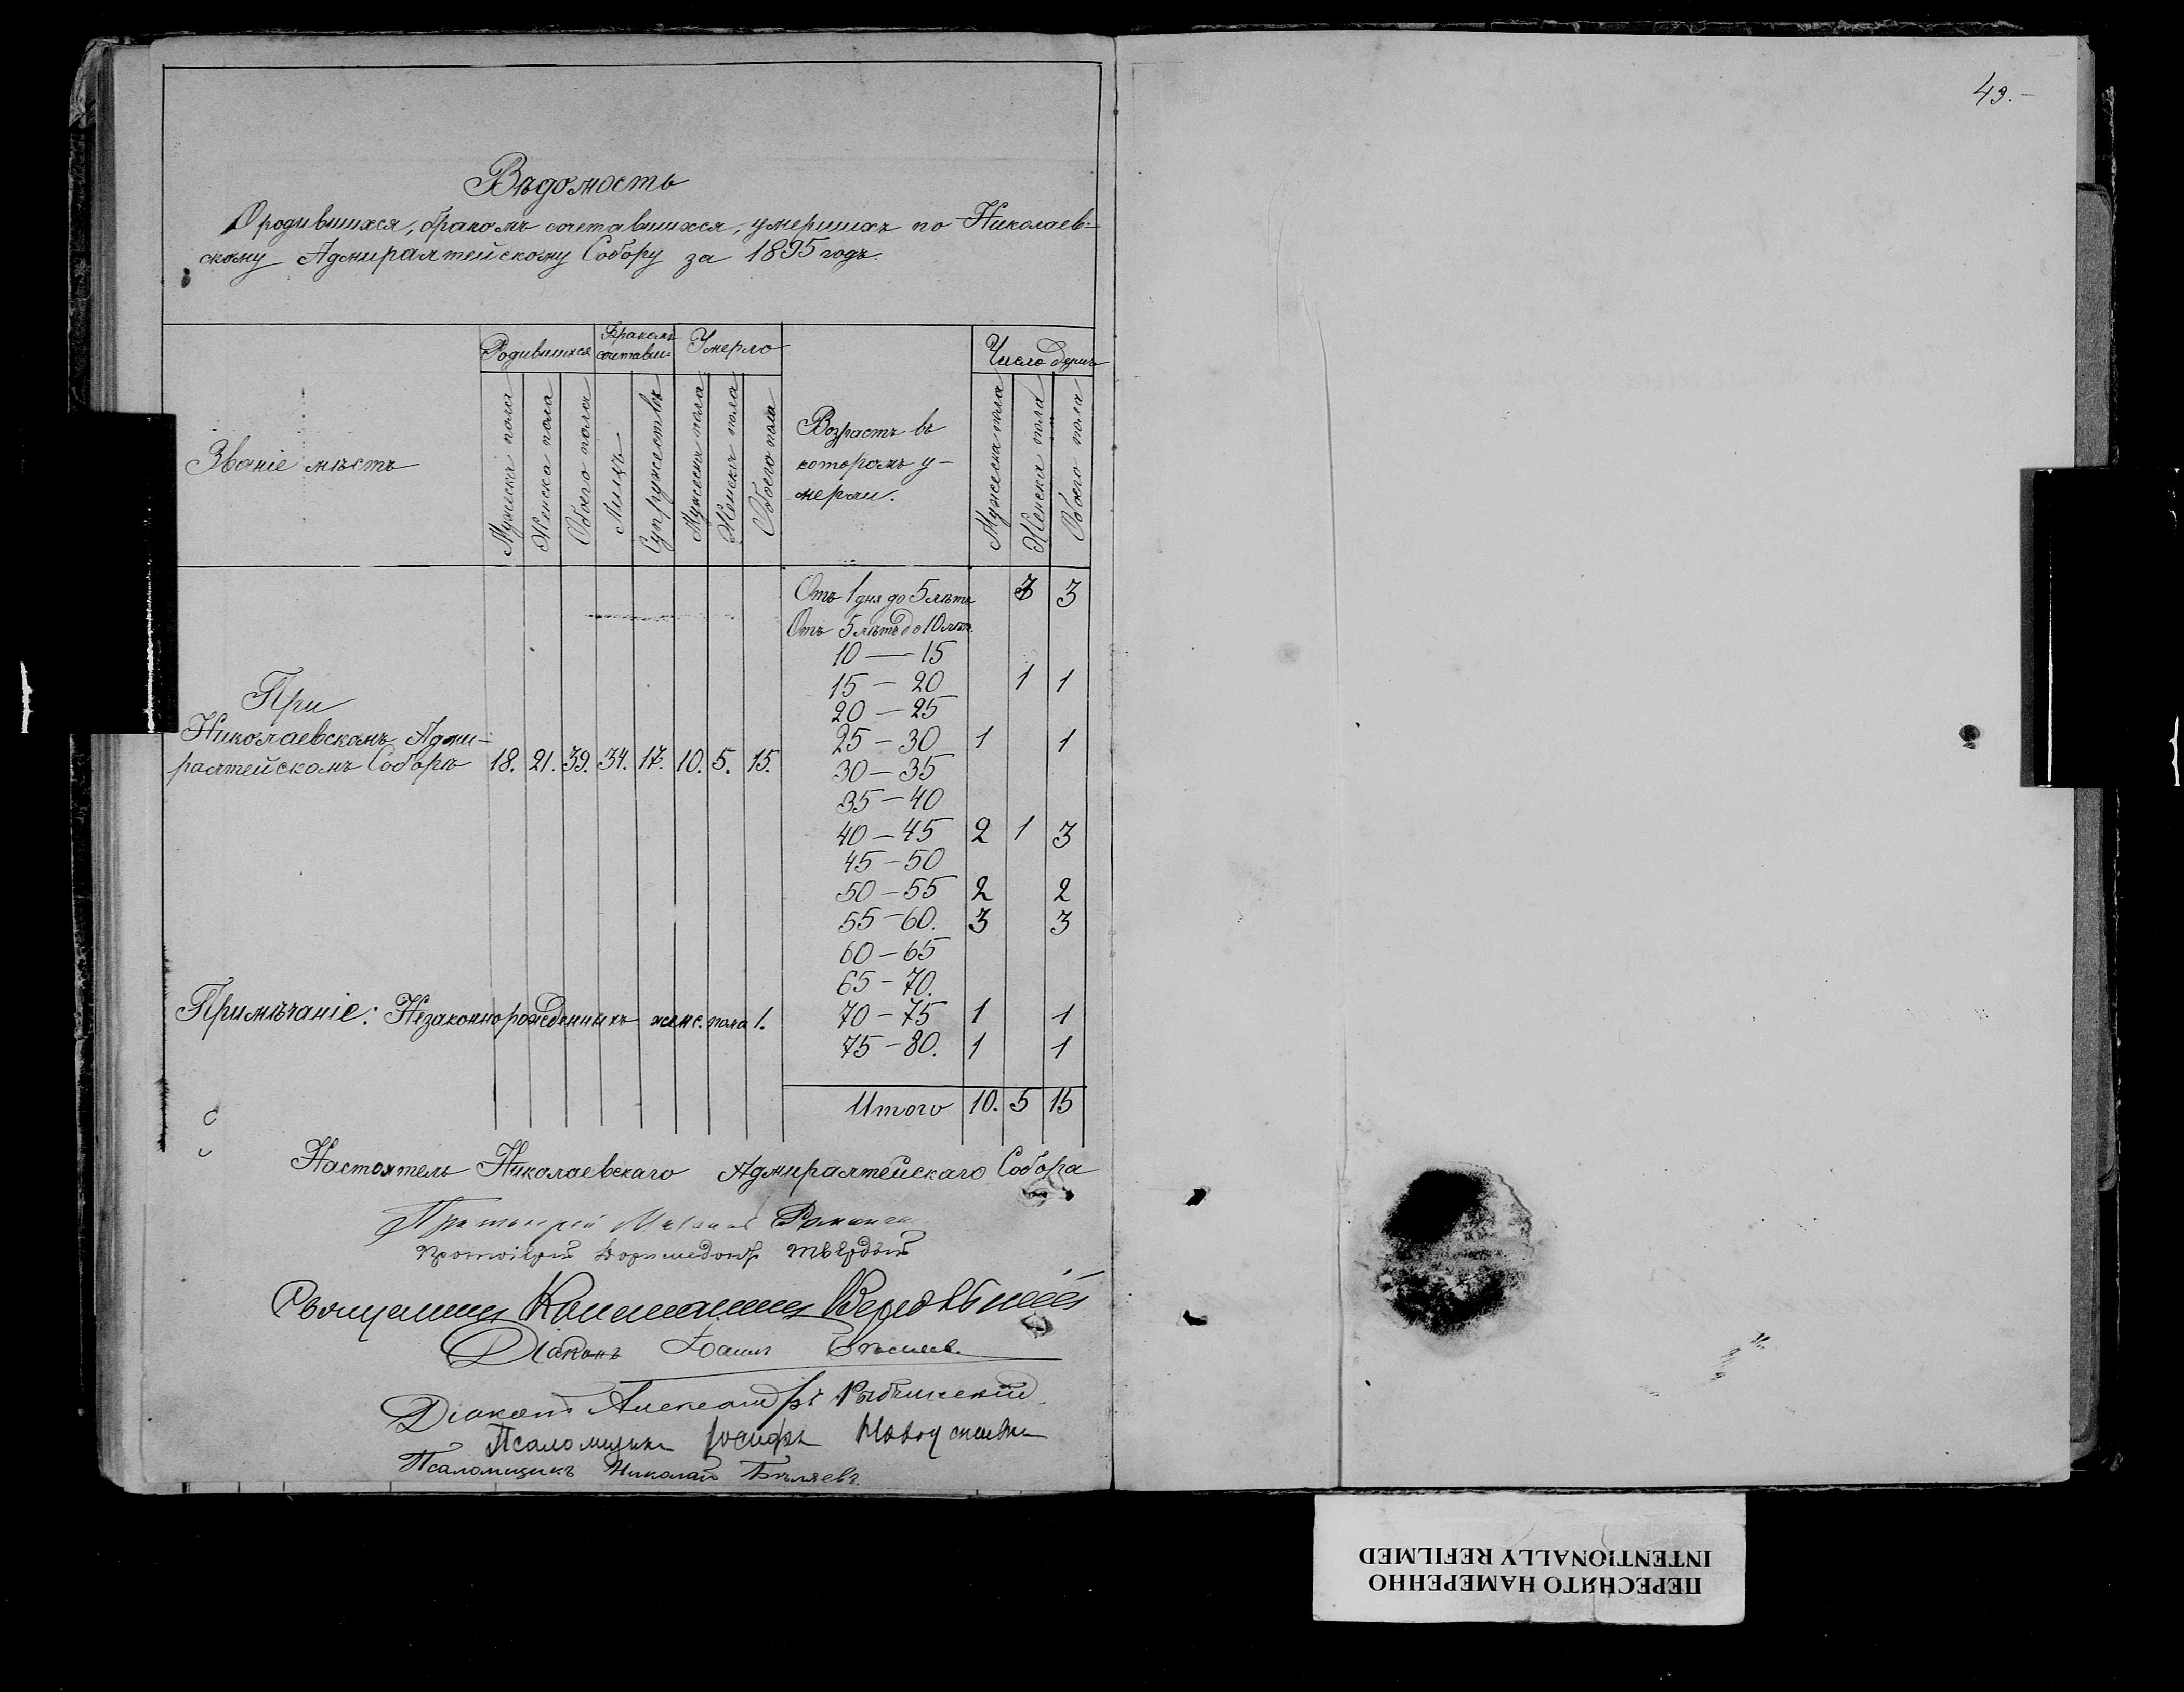 49.-
Вѣдомость
О родившихся, бракомъ сочетавшихся, умершихъ по Николаев-
скому Адмиралтейскому Собору за 1895 годъ.
Званіе мѣстъ
Родившихся
Бракомъ сочетавш:
Умерло
Возрастъ въ
которомъ у-
мерли.
Число душъ
Мужеска пола
Женска пола
Обоего пола
Лицъ
Супружествъ
Мужеска пола
Женска пола
Обоего пола
Мужеска пола
Женска пола
Обоего пола
Отъ 1 дня до 5 лѣтъ 3 3
Отъ 5 лѣтъ до 10 лѣт.
10 — 15
15 — 20 1 1
20 — 25
25 — 30 1 1
30 — 35
35 — 40
40 — 45 2 1 3
45 — 50
50 — 55 2 2
55 — 60. 3 3
60 — 65
65 — 70.
70 — 75 1 1
75 — 80. 1 1
Итого 10. 5 15
При
Николаевскомъ Адми-
ралтейскомъ Соборѣ 18. 21. 39. 34. 17. 10. 5. 15.
Примѣчаніе: Незаконнорожденныхъ женс. пола 1.
Настоятель Николаевскаго Адмиралтейскаго Собора
Протоіерей
Протоіерей Твердый
Священникъ Константинъ
Діаконъ Іоаннъ
Діаконъ Александръ Рыбчинскій
Псаломщикъ Іосифъ
Псаломщикъ Николай Бѣляевъ.
ПЕРЕСНЯТО НАМЕРЕННО
INTENTIONALLY REFILMED